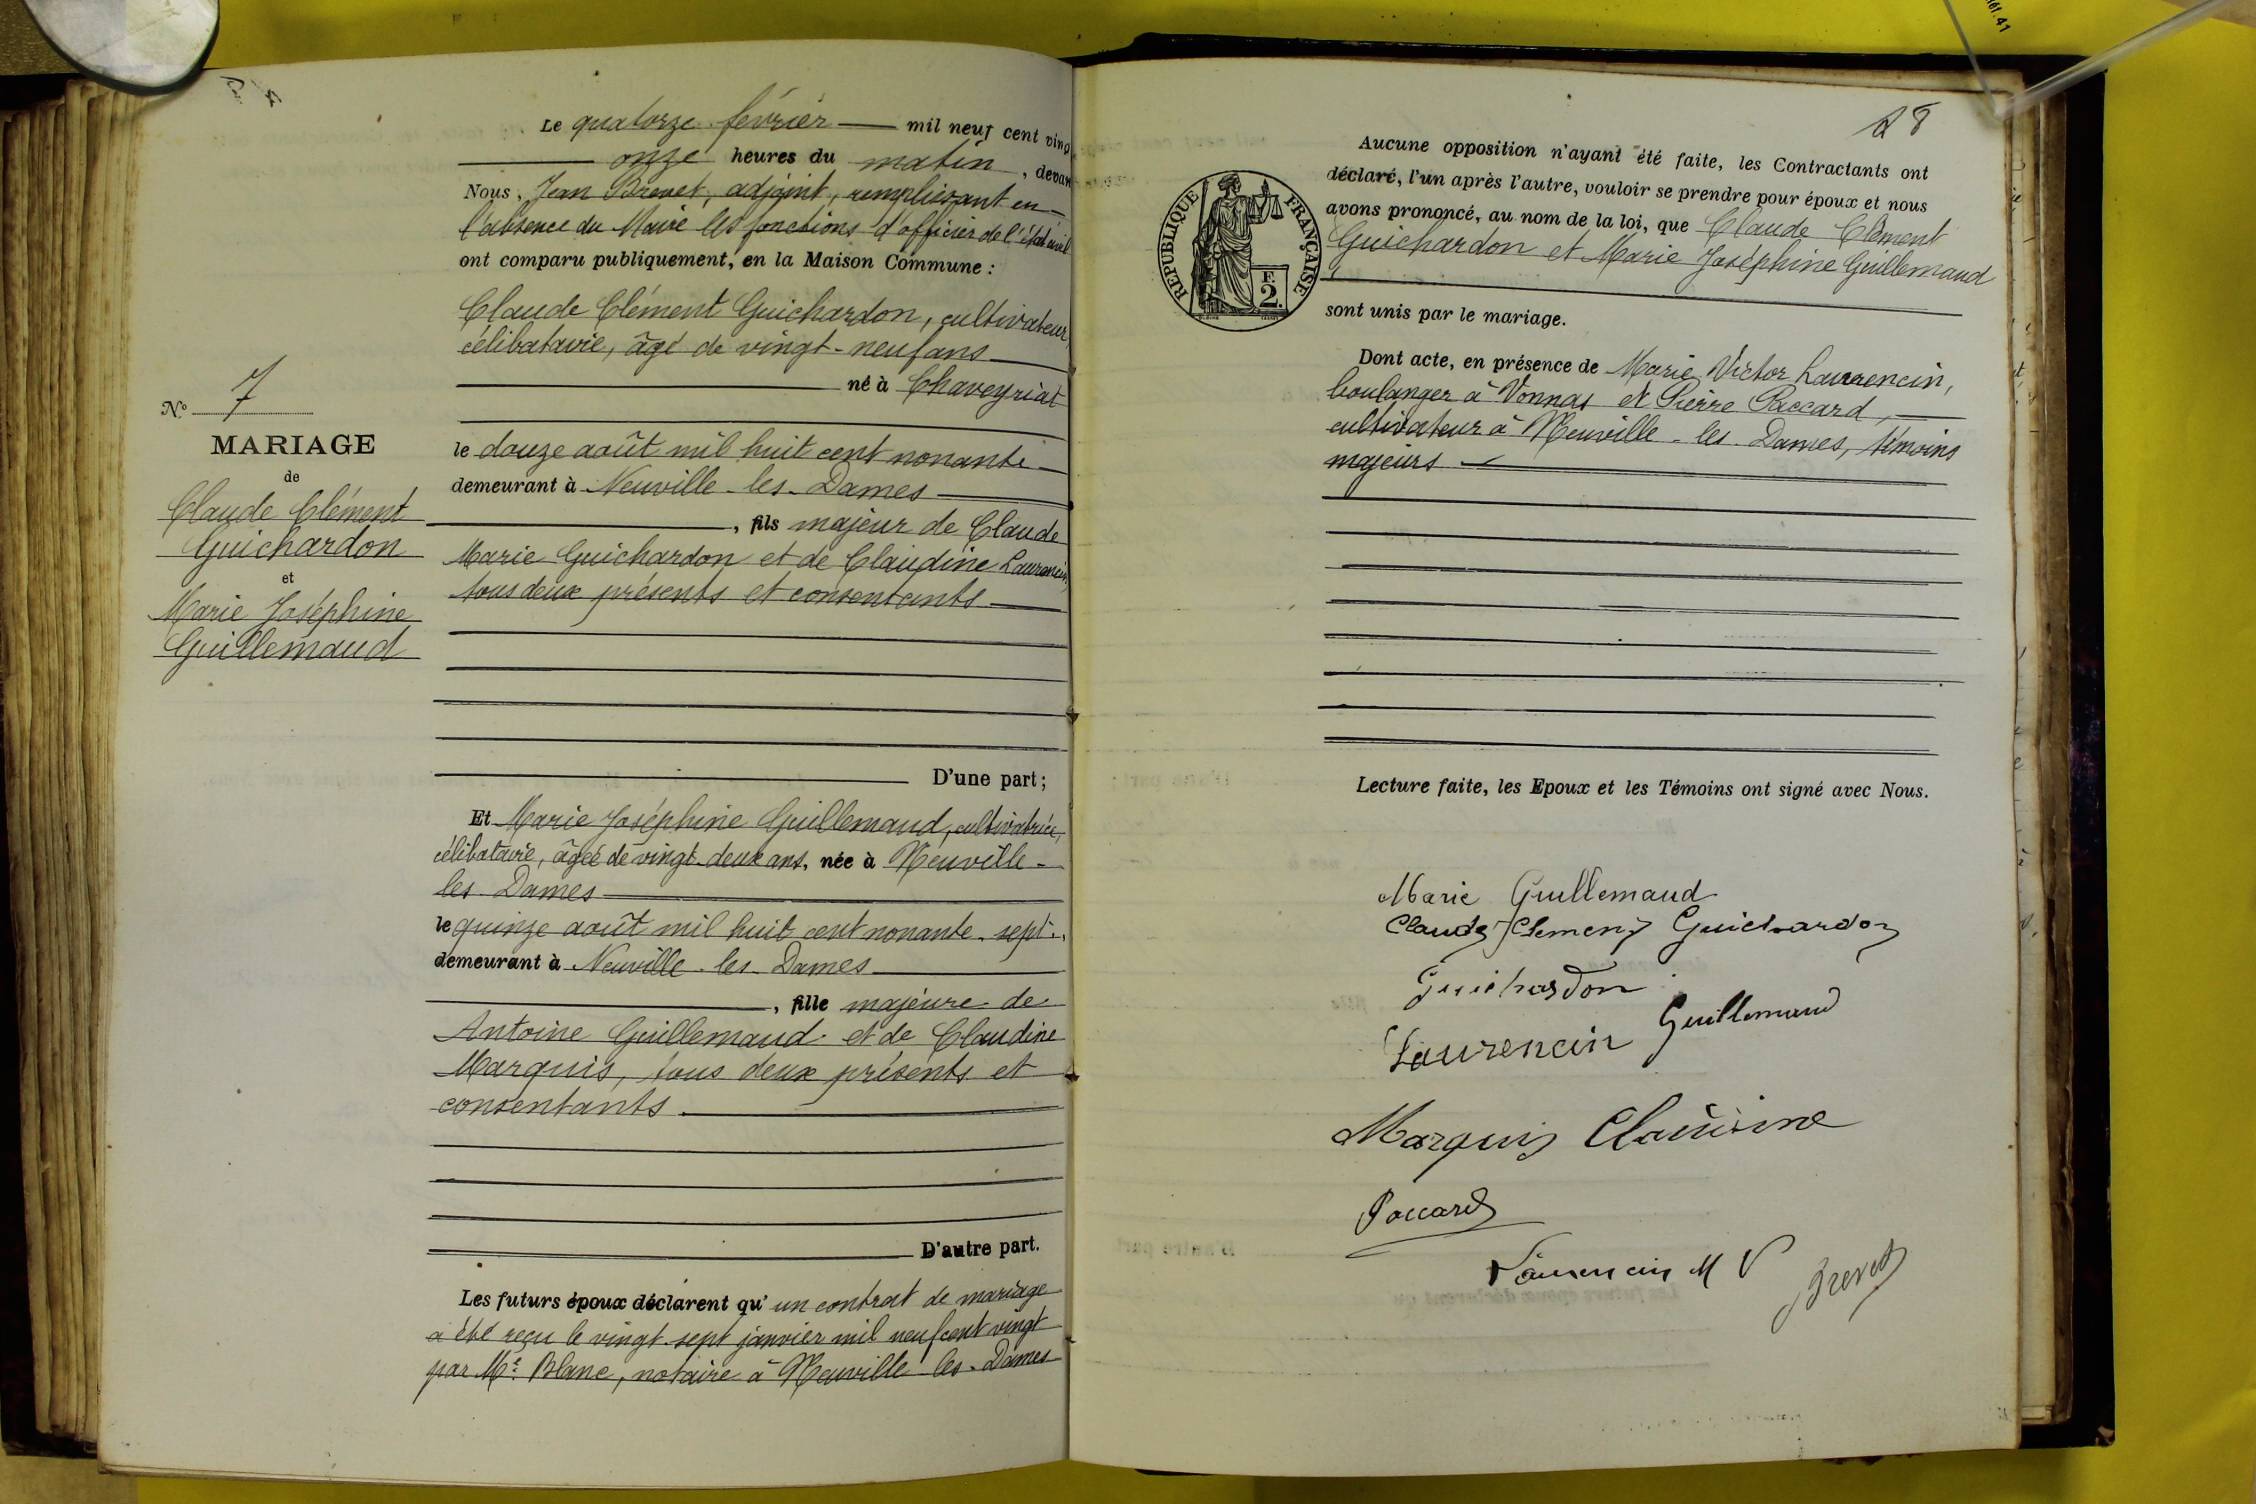 Le quatorze février mil neuf cent ving
onze heures du matin, devan
Nous, Jean Brevet, adjoint, remplissant en
l'absence du Maire les fonctions d'officier de l'état civil
ont comparu publiquement, en la Maison Commune :
Claude Clément Guichardon, cultivateur,
célibataire, âgé de vingt-neuf ans
né à Chaveyriat
le douze août mil huit cent nonante
demeurant à Neuville-les-Dames
, fils majeur de Claude
Marie Guichardon et de Claudine Laurencin,
tous deux présents et consentants
D'une part ;
Et Marie Joséphine Guillemaud, cultivatrice,
célibataire, âgée de vingt-deux ans, née à Neuville-
les-Dames
le quinze août mil huit cent nonante-sept,
demeurant à Neuville-les-Dames
, fille majeure de
Antoine Guillemaud et de Claudine
Marquis, tous deux présents et
consentants.
D'autre part.
Les futurs époux déclarent qu'un contrat de mariage
a été reçu le vingt-sept janvier mil neuf cent vingt
par Me Blanc, notaire à Neuville-les-Dames
N° 7
MARIAGE
de
Claude Clément
Guichardon
et
Marie Joséphine
Guillemaud
28
RÉPUBLIQUE FRANÇAISE
F.
2.
Aucune opposition n'ayant été faite, les Contractants ont
déclaré, l'un après l'autre, vouloir se prendre pour époux et nous
avons prononcé, au nom de la loi, que Claude Clément
Guichardon et Marie Joséphine Guillemaud
sont unis par le mariage.
Dont acte, en présence de Marie Victor Laurencin,
boulanger à Vonnas et Pierre Paccard,
cultivateur à Neuville-les-Dames, témoins
majeurs
Lecture faite, les Epoux et les Témoins ont signé avec Nous.
Marie Guillemaud
Claude Clement Guichardon
Guichardon
Guillemaud
Laurencin
Marquis Claudine
Paccard
Laurencin M V
Brevet